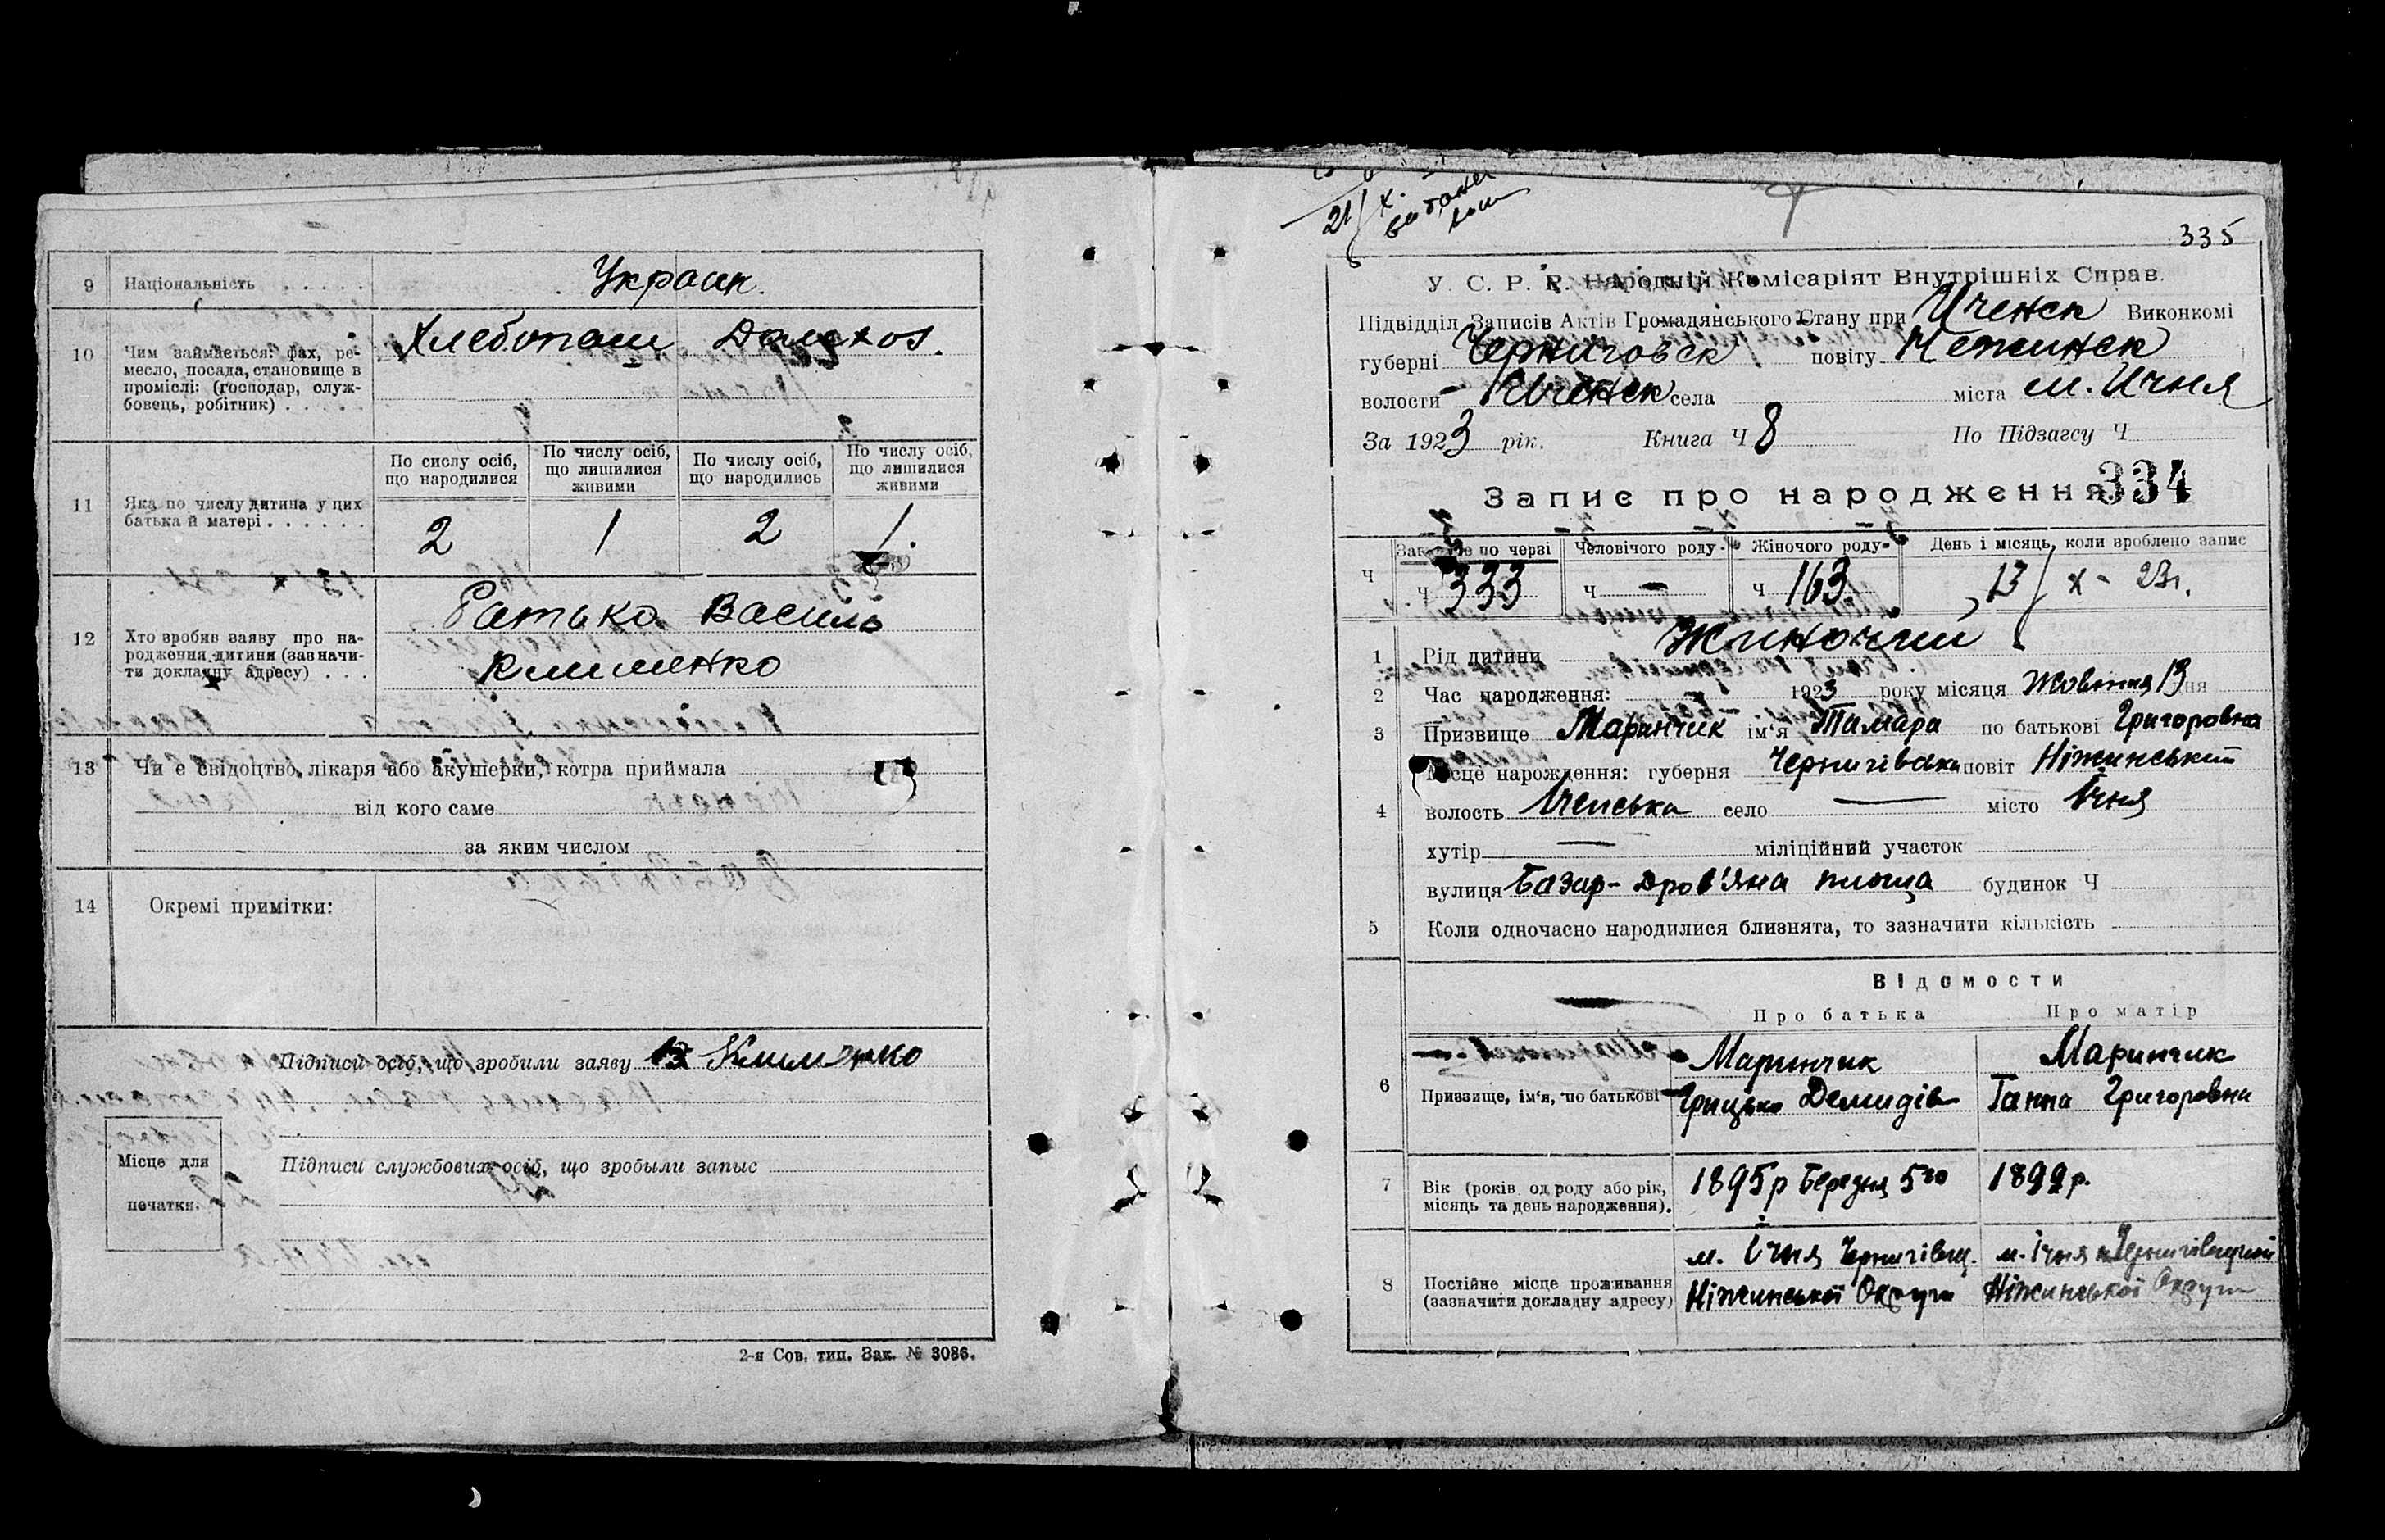 9 Національність . . . . . Украин.
10 Чим займається: фах, ре-
месло, посада, становище в
проміслі: (господар, служ-
бовець, робітник) . . . . .
Хлебопаш Домахоз.
11 Яка по числу дитина у цих
батька й матері . . . . . .
По сислу осіб,
що народилися
По числу осіб,
що лишилися
живими
По числу осіб,
що народились
По числу осіб,
що лишилися
живими
2 1 2 1.
12 Хто зробив заяву про на-
родження дитини (зазначи-
ти докладну адресу) . . .
Батько Василь
Клименко
13 Чи є свідоцтво лікаря або акушерки, котра приймала
від кого саме
за яким числом
14 Окремі примітки:
Підписи осіб, що зробили заяву Клименко
Місце для
печатки.
Підписи службових осіб, що зробыли запыс
2-я Сов. тип. Зак. № 3086.
21/X.
335
У. С. Р. Р. Народній Комісаріят Внутрішніх Справ.
Підвідділ Записів Актів Громадянського Стану при Иченск Виконкомі
губерні Черниговск повіту Нежинск
волости Иченск села міста м. Ичня
За 1923 рік. Книга Ч 8 По Підзагсу Ч
Запис про народження 334
Ч Загальне по черзі Человічого роду Жіночого роду День і місяць, коли зроблено запис
Ч 333 Ч — Ч 163. 13/X - 23г.
1 Рід дитини Жиночий
2 Час народження: 1923 року місяця Жовтня 13 дня
3 Призвище Маринчик ім'я Тамара по батькові Григоровна
4 Місце нарождення: губерня Чернигівська повіт Ніжинський
волость Іченська село — місто Ічня
хутір — міліційний участок
вулиця Базар- Дров'яна площа будинок Ч
5 Коли одночасно народилися близнята, то зазначити кількість
Відомости
Про батька Про матір
6 Призвище, ім'я, по батькові
Маринчик
Грицько Демидів
Маринчик
Ганна Григоровна
7 Вік (років од роду або рік,
місяць та день народження).
1895р Березня 5го 1899р.
8 Постійне місце проживання
(зазначити докладну адресу)
м. Ічня Чернигівщ.
Ніжинської Округи
м. Ічня Чернигівщини
Ніжинської Округи